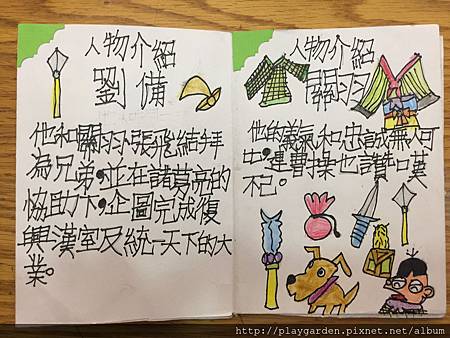 人物介紹
劉備
他和關羽張飛結拜
為兄弟,並在諸葛亮的
協助下,企圖完成復
興漢室及統一天下的大
業。
人物介紹
關羽
他的義氣和忠誠無人可
比,連曹操也讚嘆
不已。
http://playgarden.pixnet.net/album